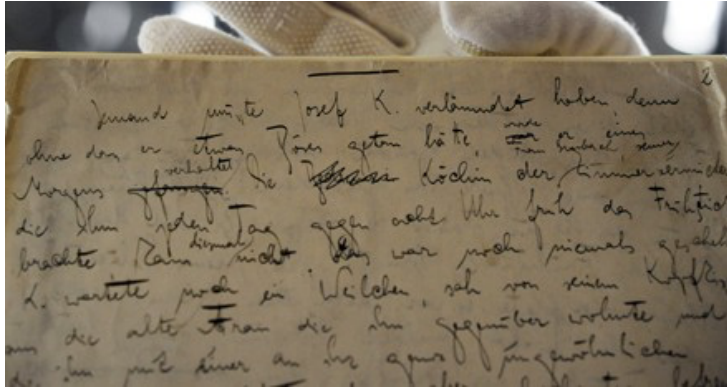 2
Jemand mußte Josef K. verläumdet haben, denn
ohne daß er etwas Böses getan hätte, wurde er eines
Morgens verhaftet. Die Köchin der
die ihm jeden Tag gegen acht Uhr früh das Frühstück
brachte kam diesmal nicht. Das war noch niemals gescheh
K. wartete noch ein Weilchen, sah von seinem Kopfkis
aus die alte Frau die ihm gegenüber wohnte und
die ihn mit einer an ihr ganz ungewöhnlichen